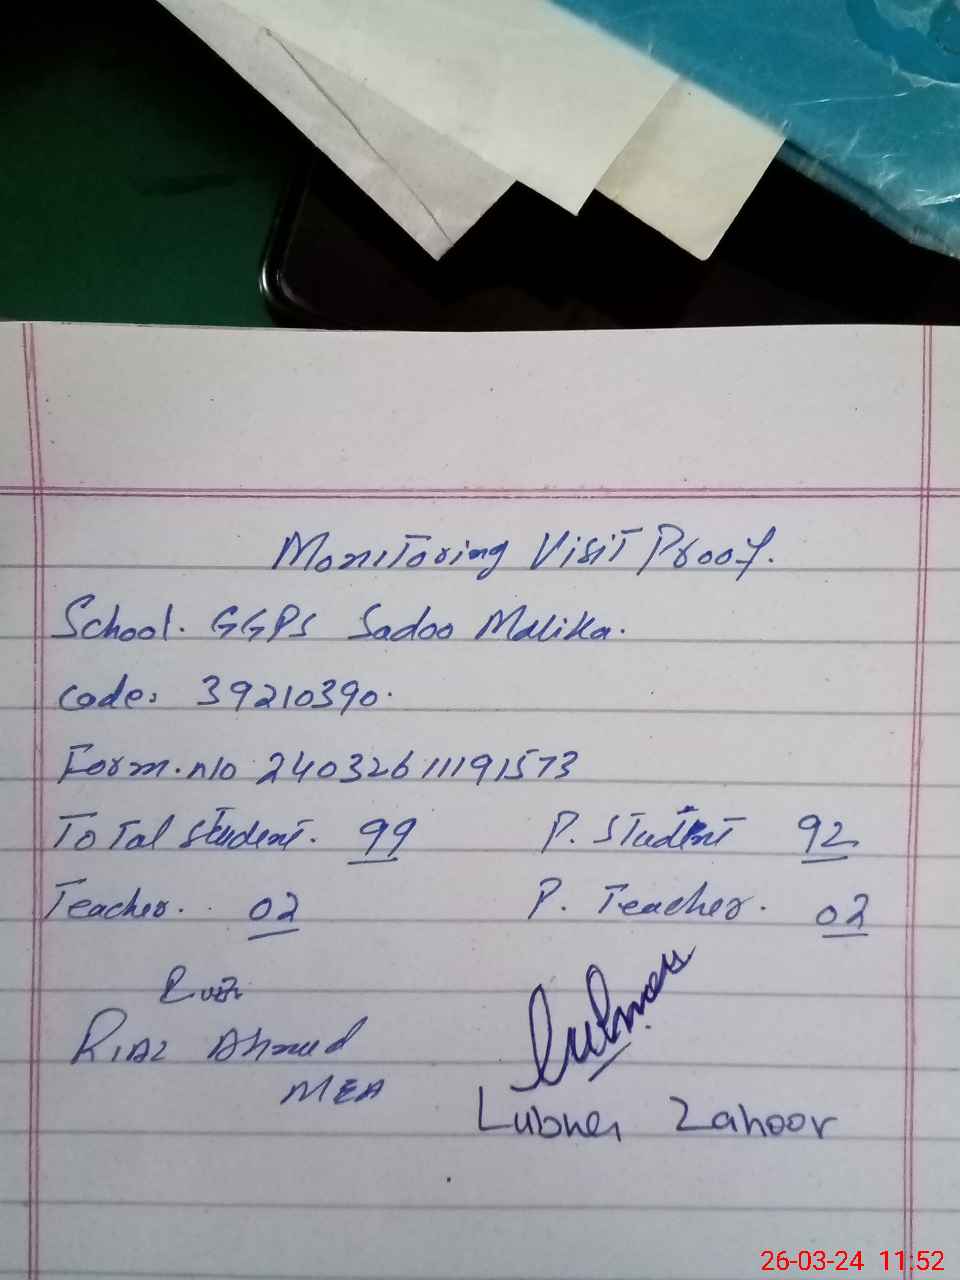 Monitoring Visit Proof.
School. GGPS Sadoo Malika.
Code: 39210390.
Form. no 24032611191573
Total student. 99 P. Student 92
Teacher. 02 P. Teacher. 02
Riaz Ahmed
MEA
Lubna
Lubna Zahoor
26-03-24 11:52